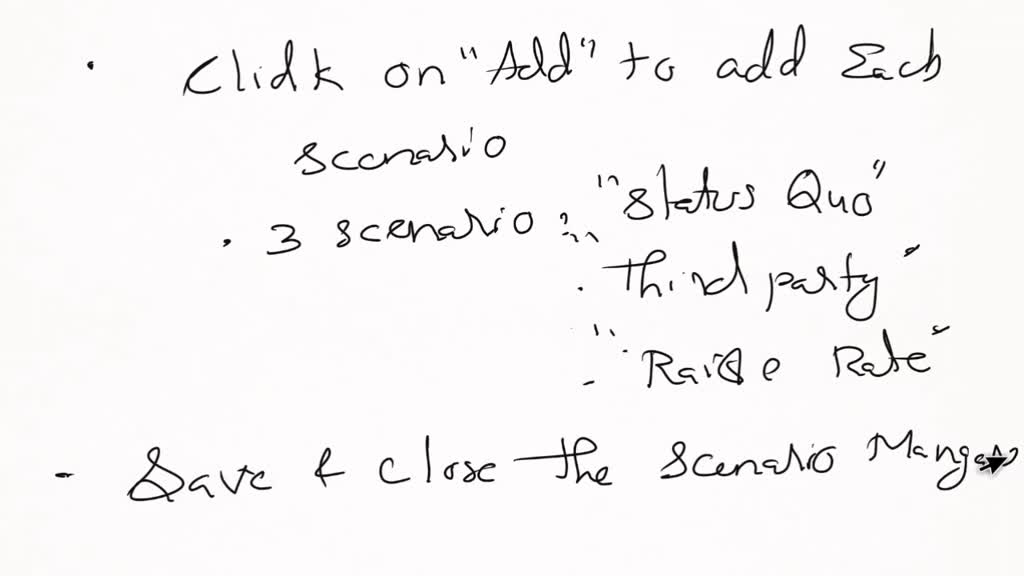 • Clidk on "Add" to add Each
scenario
• 3 scenario : "Status Quo"
• "Third party"
- "Raise Rate"
- Save & close the Scenario Manger